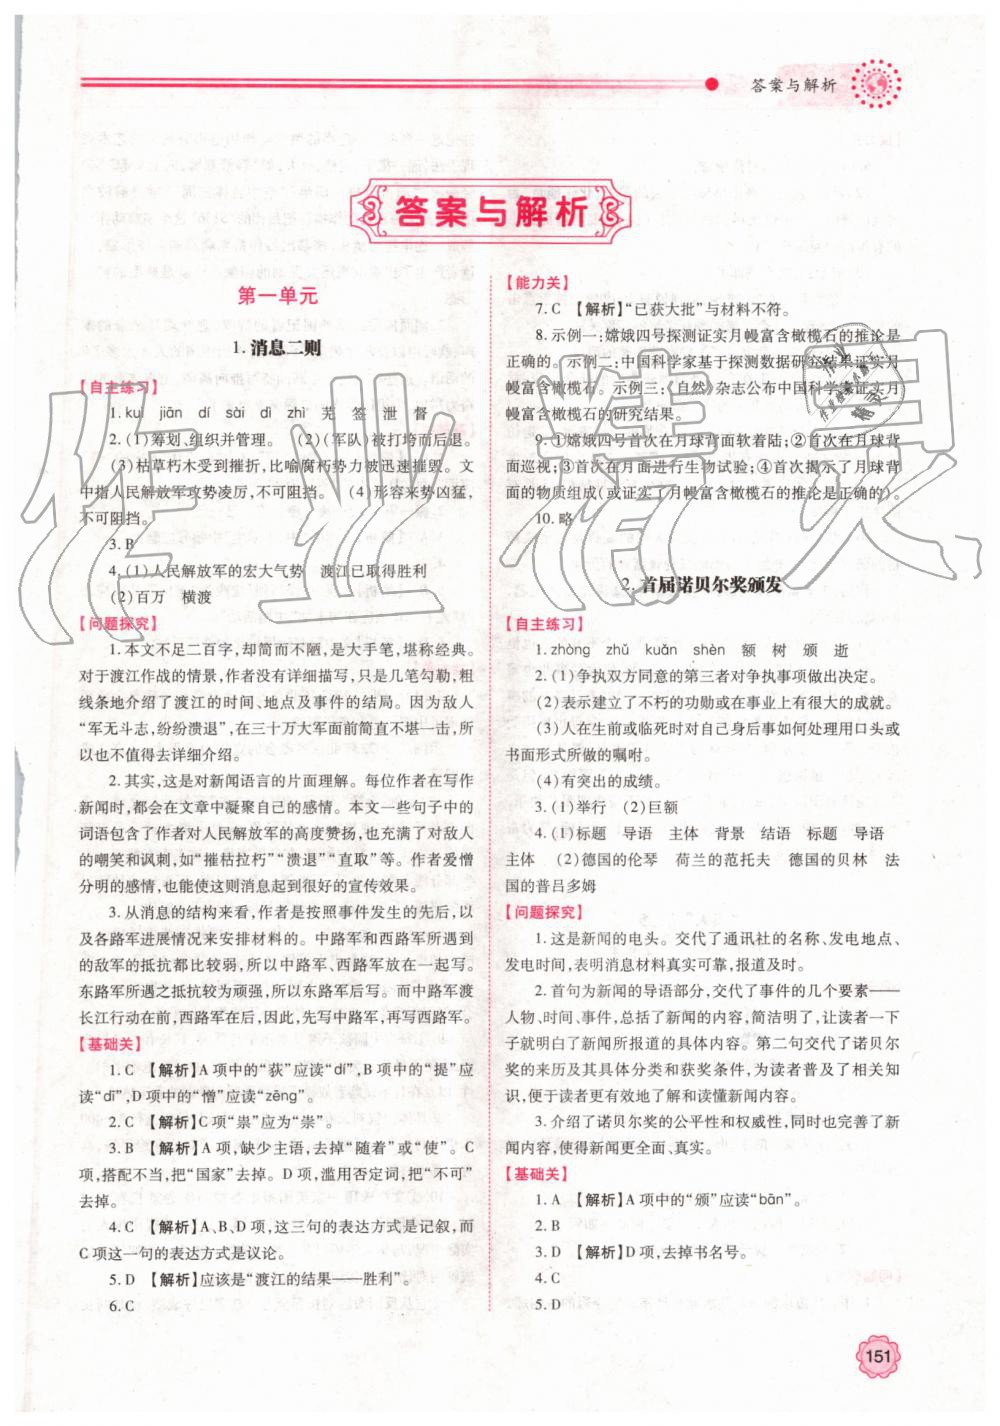 答案与解析
答案与解析
第一单元
1. 消息二则
【自主练习】
1. kuì jiān dí sài dī zhì 芜 签 泄 督
2. (1)筹划、组织并管理。 (2)(军队)被打垮而后退。
(3)枯草朽木受到摧折，比喻腐朽势力被迅速摧毁。文
中指人民解放军攻势凌厉，不可阻挡。 (4)形容来势凶猛，
不可阻挡。
3. B
4. (1)人民解放军的宏大气势 渡江已取得胜利
(2)百万 横渡
【问题探究】
1. 本文不足二百字，却简而不陋，是大手笔，堪称经典。
对于渡江作战的情景，作者没有详细描写，只是几笔勾勒，粗
线条地介绍了渡江的时间、地点及事件的结局。因为敌人
“军无斗志，纷纷溃退”，在三十万大军面前简直不堪一击，所
以也不值得去详细介绍。
2. 其实，这是对新闻语言的片面理解。每位作者在写作
新闻时，都会在文章中凝聚自己的感情。本文一些句子中的
词语包含了作者对人民解放军的高度赞扬，也充满了对敌人
的嘲笑和讽刺，如“摧枯拉朽”“溃退”“直取”等。作者爱憎
分明的感情，也能使这则消息起到很好的宣传效果。
3. 从消息的结构来看，作者是按照事件发生的先后，以
及各路军进展情况来安排材料的。中路军和西路军所遇到
的敌军的抵抗都比较弱，所以中路军、西路军放在一起写。
东路军所遇之抵抗较为顽强，所以东路军后写。而中路军渡
长江行动在前，西路军在后，因此，先写中路军，再写西路军。
【基础关】
1. C 【解析】A 项中的“荻”应读“dí”，B 项中的“提”应
读“dī”，D 项中的“憎”应读“zēng”。
2. C 【解析】C项“祟”应为“崇”。
3. B 【解析】A 项，缺少主语，去掉“随着”或“使”。C
项，搭配不当，把“国家”去掉。D 项，滥用否定词，把“不可”
去掉。
4. C 【解析】A、B、D 项，这三句的表达方式是记叙，而
C 项这一句的表达方式是议论。
5. D 【解析】应该是“渡江的结果——胜利”。
6. C
【能力关】
7. C 【解析】“已获大批”与材料不符。
8. 示例一：嫦娥四号探测证实月幔富含橄榄石的推论是
正确的。示例二：中国科学家基于探测数据研究结果证实月
幔富含橄榄石。示例三：《自然》杂志公布中国科学家证实月
幔富含橄榄石的研究结果。
9. ①嫦娥四号首次在月球背面软着陆；②首次在月球背
面巡视；③首次在月面进行生物试验；④首次揭示了月球背
面的物质组成(或证实了月幔富含橄榄石的推论是正确的)。
10. 略
2. 首届诺贝尔奖颁发
【自主练习】
1. zhòng zhǔ kuǎn shèn 额 树 颁 逝
2. (1)争执双方同意的第三者对争执事项做出决定。
(2)表示建立了不朽的功勋或在事业上有很大的成就。
(3)人在生前或临死时对自己身后事如何处理用口头或
书面形式所做的嘱咐。
(4)有突出的成绩。
3. (1)举行 (2)巨额
4. (1)标题 导语 主体 背景 结语 标题 导语
主体 (2)德国的伦琴 荷兰的范托夫 德国的贝林 法
国的普吕多姆
【问题探究】
1. 这是新闻的电头。交代了通讯社的名称、发电地点、
发电时间，表明消息材料真实可靠，报道及时。
2. 首句为新闻的导语部分，交代了事件的几个要素——
人物、时间、事件，总括了新闻的内容，简洁明了，让读者一下
子就明白了新闻所报道的具体内容。第二句交代了诺贝尔
奖的来历及其颁奖惯例和获奖条件，为读者普及了相关常
识，便于读者更有效地了解和读懂新闻内容。
3. 介绍了诺贝尔奖的公平性和权威性，同时也完善了新
闻内容，使得新闻更全面、真实。
【基础关】
1. A 【解析】A 项中的“颁”应读“bān”。
2. B
3. D 【解析】D 项，去掉书名号。
4. C
5. D
151
作业精灵